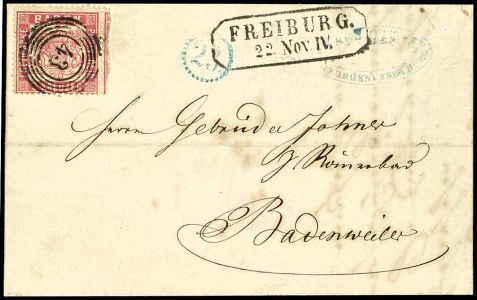 BADEN
43
23
FREIBURG.
22. Nov IV.
Herrn Gebrüder Johner
Römerbad
Badenweiler